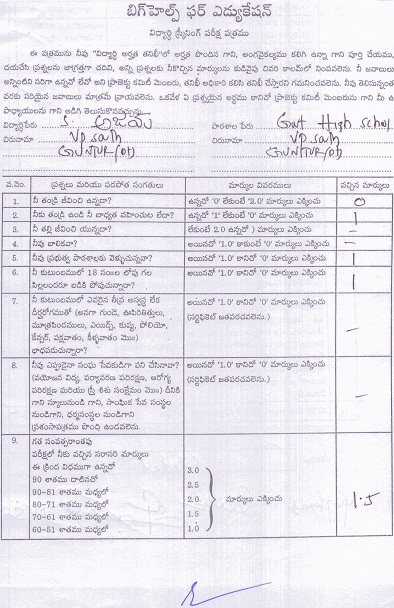 బిగ్‌హెల్ప్ ఫర్ ఎడ్యుకేషన్
విద్యార్థి స్క్రీనింగ్ పరీక్ష పత్రము
ఈ పత్రమును నీవు "విద్యార్థి అర్హత తనిఖీ"లో అర్హత పొందిన గాని, అంగవైకల్యము కలిగి ఉన్నా గాని పూర్తి చేయము,
దయచేసి ప్రశ్నలను జాగ్రత్తగా చదివి, అన్ని ప్రశ్నలకు నీకొచ్చిన మార్కులను కుడివైపు చివరి కాలమ్‌లో నింపవలెను. నీ జవాబులు
అన్నింటిని సరిగా ఉన్నవో లేవో అని ప్రాజెక్టు కమిటీ మెంబరు, తనిఖీ అధికారి కలిసి తనిఖీ చేస్తారని గమనించవలెను. నీవు తెలిసినంత
వరకు సరియైన జవాబులు మాత్రమే వ్రాయవలెను. ఒకవేళ ఏ ప్రశ్నయైన అర్థము కానిచో ప్రాజెక్టు కమిటీ మెంబరును గాని మీ ఉ
పాధ్యాయులను గాని అడిగి తెలుసుకొనవచ్చును.
విద్యార్థిపేరు S. అజయ్ పాఠశాల పేరు Govt High school
చిరునామా VP Sath చిరునామా VP Sath
GUNTUR (Dt) GUNTUR (Dt)
వ.నెం. ప్రశ్నలు మరియు పరపోత సంగతులు మార్కుల వివరములు వచ్చిన మార్కులు
1. నీ తండ్రి జీవించి ఉన్నడా? ఉన్నచో '0' లేకుంటే '2.0' మార్కులు ఎక్కించు 0
2. నీకు తండ్రి ఉండి నీ బాధ్యత వహించుట లేదా? ఉన్నచో '1' లేకుంటే '0' మార్కులు ఎక్కించు 1
3. నీ తల్లి జీవించి యున్నదా? లేకుంటే 2.0 ఉన్నచో ) మార్కులు ఎక్కించు –
4. నీవు బాలికవా? అయినచో '1.0' కాకుంటే '0' మార్కులు ఎక్కించు –
5. నీవు ప్రభుత్వ పాఠశాలకు వెళ్ళుచున్నవా? అయినచో '1.0' కానిచో '0' మార్కులు ఎక్కించు 1
6. నీ కుటుంబములో 18 సం॥ల లోపు గల
పిల్లలందరూ బడికి పోవుచున్నారా? అయినచో '1.0' కానిచో '0' మార్కులు ఎక్కించు 1
7. నీ కుటుంబములో ఎవరైన తీవ్ర అస్వస్థ లేక
దీర్ఘరోగముతో (అనగా గుండె, ఊపిరితిత్తులు,
మూత్రపిండములు, ఎయిడ్స్, కుష్ఠు, పోలియో,
కేన్సర్, పక్షవాతం, కీళ్ళవాతం మొ॥)
భాధపడుచున్నారా? అయినచో '1.0' కానిచో '0' మార్కులు ఎక్కించు
(సర్టిఫికెట్ జతపరచవలెను.) –
8. నీవు ఎప్పుడైనా సంఘ సేవకుడిగా పని చేసినావా?
(వయోజన విద్య, పర్యావరణ పరిరక్షణ, ఆరోగ్య
పరిరక్షణ మరియు స్త్రీ శిశు సంక్షేమం మొ॥) దీనికి
గాని స్కూలునుండి గాని, సాంఘిక సేవ సంస్థల
నుండిగాని, ధర్మసంస్థల నుండిగాని
ప్రశంసాపత్రము పొంది ఉండవలెను. అయినచో '1.0' కానిచో '0' మార్కులు ఎక్కించు
(సర్టిఫికెట్ జతపరచవలెను.) –
9. గత సంవత్సరాంతపు
పరీక్షలో నీకు వచ్చిన సరాసరి మార్కులు
ఈ క్రింద విధముగా ఉన్నచో
90 శాతము దాటినచో 3.0
90-81 శాతము మధ్యలో 2.5
80-71 శాతము మధ్యలో 2.0 మార్కులు ఎక్కించు 1.5
70-61 శాతము మధ్యలో 1.5
60-51 శాతము మధ్యలో 1.0